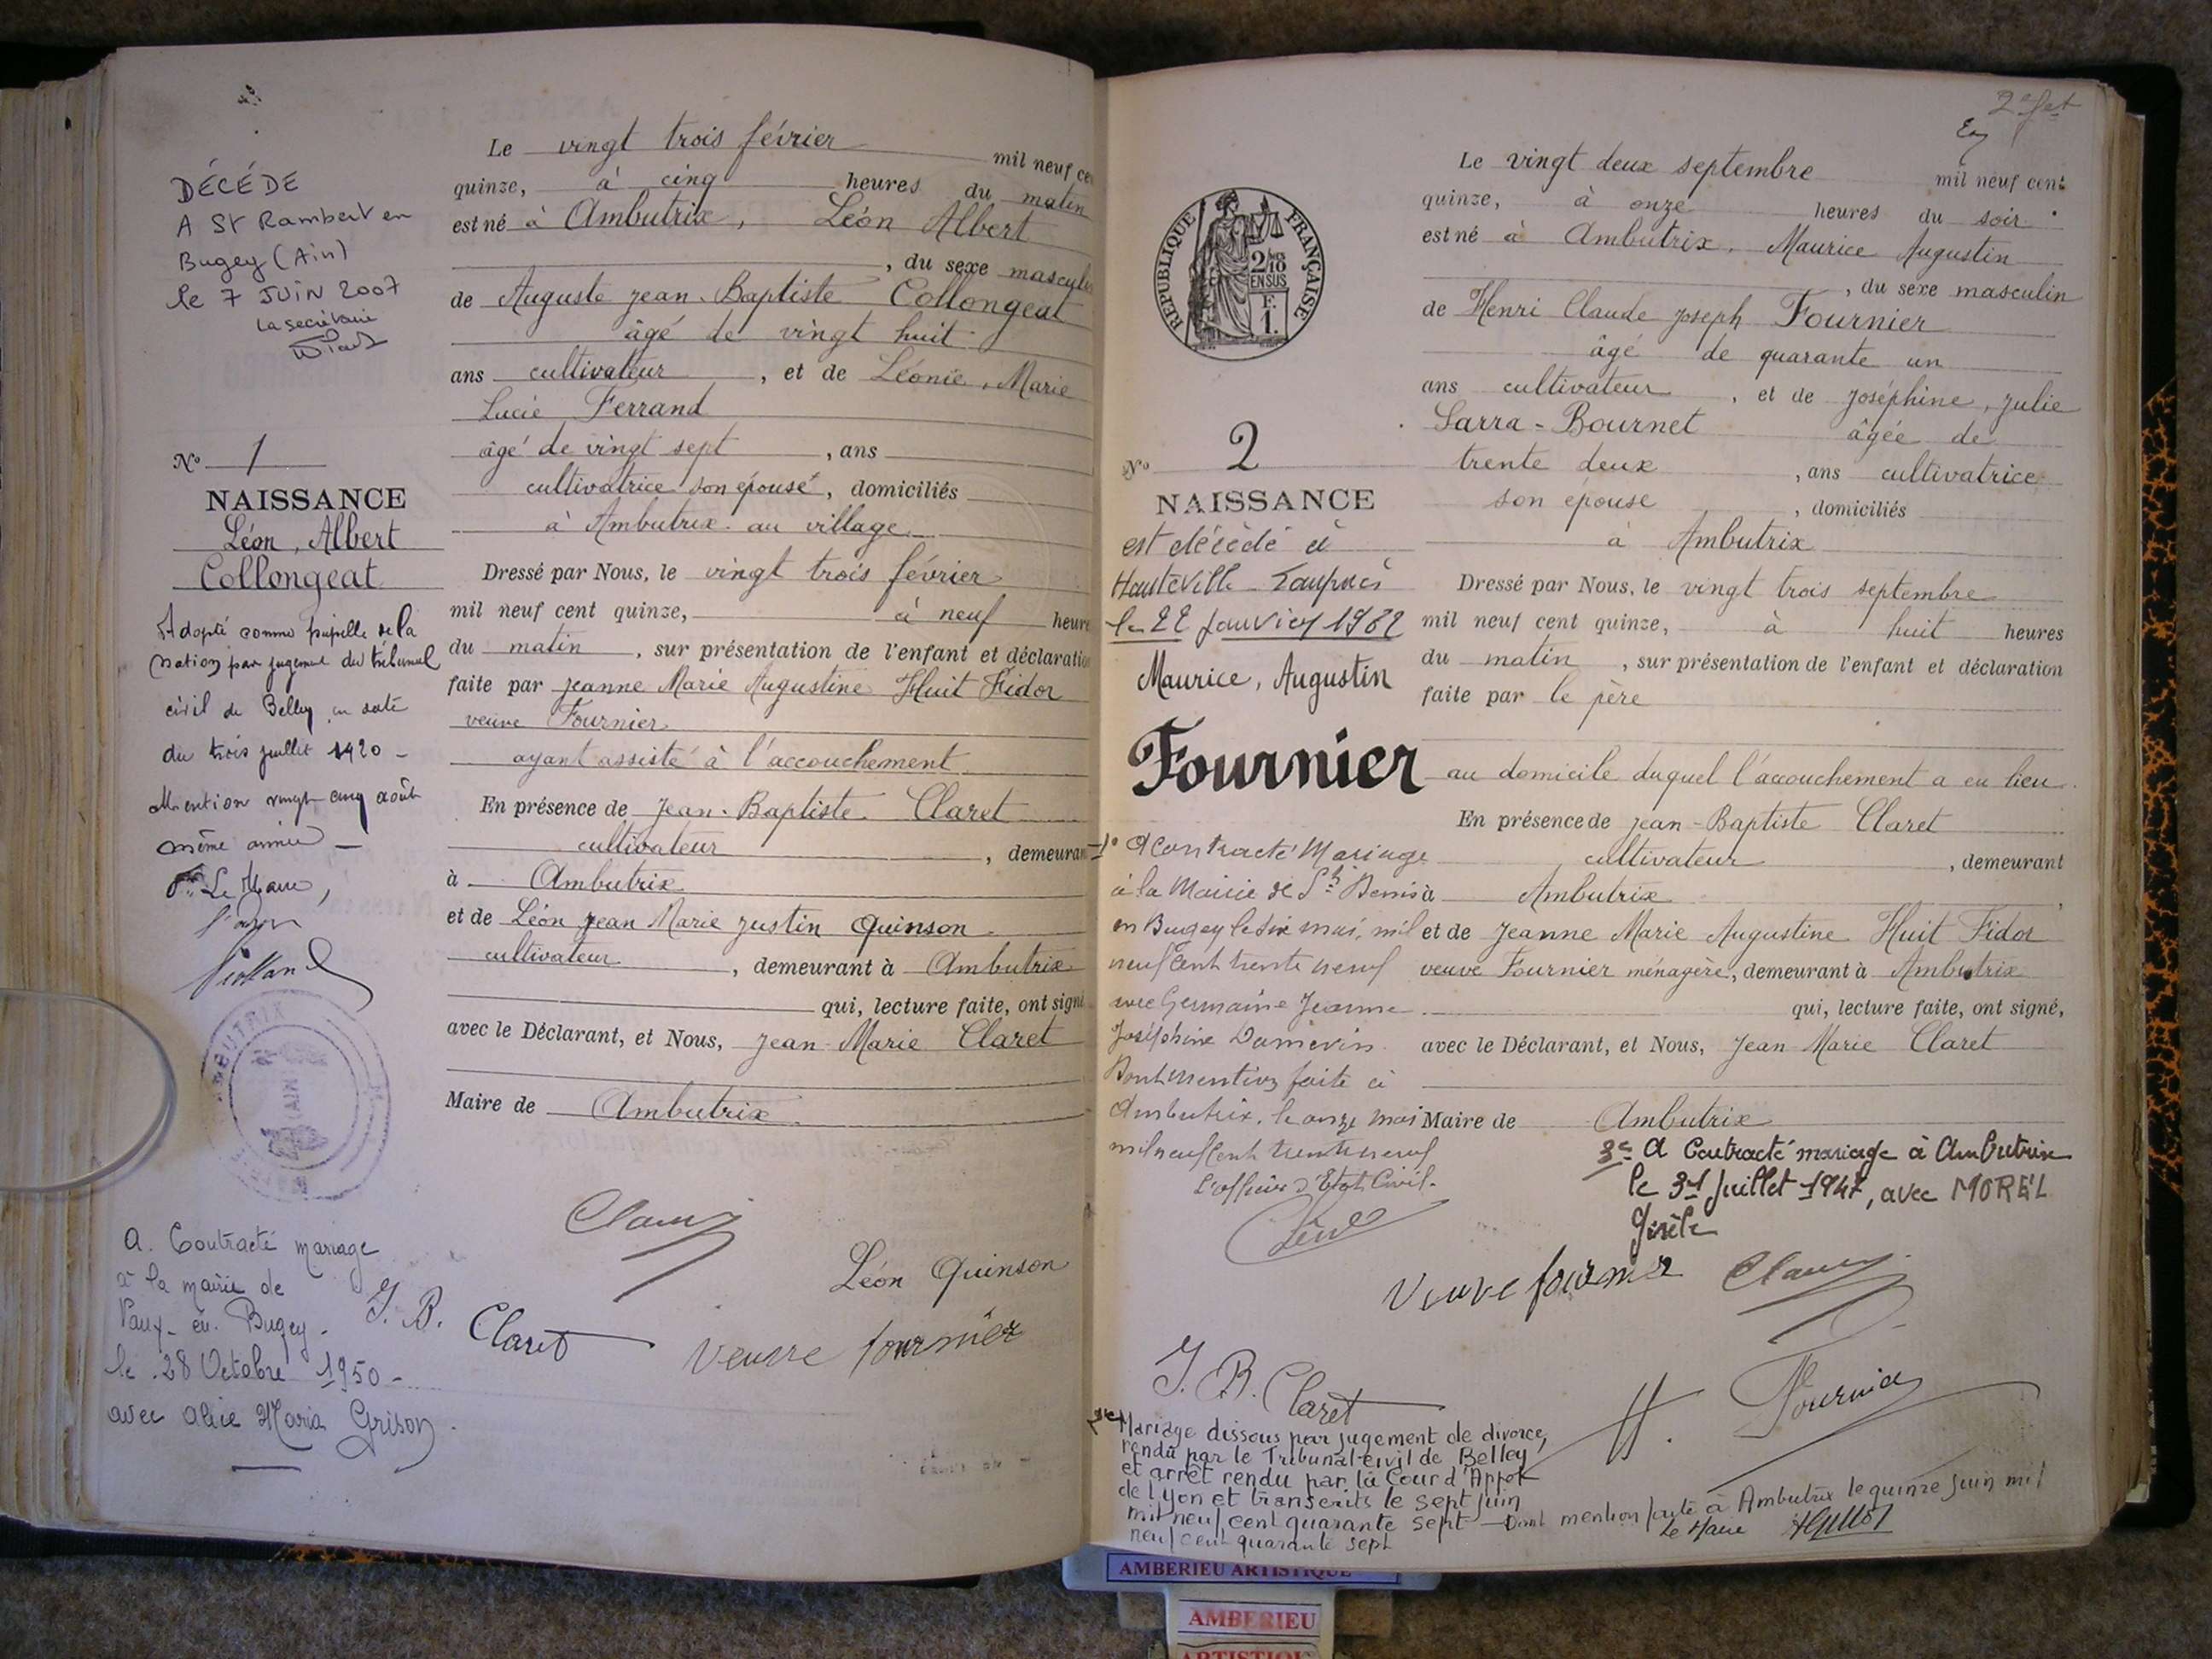 DÉCÉDE
A St Rambert en
Bugey (Ain)
le 7 JUIN 2007
La secrétaire
N° 1
NAISSANCE
Léon, Albert
Collongeat
Adopté comme pupille de la
Nation par jugement du tribunal
civil de Belley, en date
du trois juillet 1920 -
Mention vingt cinq août
même année -
Le Maire,
A. Contracté mariage
à la mairie de
Vaux-en-Bugey -
le 28 Octobre 1950 -
avec Alice Maria Grison.
Le vingt trois février mil neuf cen
quinze, à cinq heures du matin
est né à Ambutrix, Léon Albert
, du sexe masculin
de Auguste Jean-Baptiste Collongeat
âgé de vingt huit
ans cultivateur, et de Léonie, Marie
Lucie Ferrand
âgé de vingt sept, ans
cultivatrice son épouse, domiciliés
à Ambutrix au village
Dressé par Nous, le vingt trois février
mil neuf cent quinze, à neuf heure
du matin, sur présentation de l'enfant et déclaratio
faite par Jeanne Marie Augustine Huit Fidor
veuve Fournier
ayant assisté à l'accouchement
En présence de Jean-Baptiste Claret
cultivateur, demeuran
à Ambutrix
et de Léon Jean Marie Justin Quinson
cultivateur, demeurant à Ambutrix
qui, lecture faite, ont signé
avec le Déclarant, et Nous, Jean-Marie Claret
Maire de Ambutrix
Claret
Léon Quinson
J. B. Claret
Veuve fournier
RÉPUBLIQUE FRANÇAISE
2/10
EN SUS
F.
1.
N° 2
NAISSANCE
est décédé à
Hauteville-Lompnès
Maurice, Augustin
Fournier
1° A contracté Mariage
à la Mairie de St Denis
en Bugey le six mai, mil
neuf cent trente neuf
avec Germaine Jeanne
Joséphine Damevin
Dont mention faite à
Ambutrix, le onze mai
mil neuf cent trente neuf
L'officier d'Etat Civil.
Le vingt deux septembre mil neuf cent
quinze, à onze heures du soir
est né à Ambutrix, Maurice Augustin
, du sexe masculin
de Henri Claude Joseph Fournier
âgé de quarante un
ans cultivateur, et de Joséphine, Julie
Sarra-Bournet âgée de
trente deux, ans cultivatrice
son épouse, domiciliés
à Ambutrix
Dressé par Nous, le vingt trois septembre
mil neuf cent quinze, à huit heures
du matin, sur présentation de l'enfant et déclaration
faite par le père
au domicile duquel l'accouchement a eu lieu.
En présence de Jean-Baptiste Claret
cultivateur, demeurant
à Ambutrix
et de Jeanne Marie Augustine Huit Fidor
veuve Fournier ménagère, demeurant à Ambutrix
qui, lecture faite, ont signé,
avec le Déclarant, et Nous, Jean Marie Claret
Maire de Ambutrix
3° A Contracté mariage à Ambutrix
le 31 Juillet 1947, avec MOREL
Gisèle
Veuve fournier Claret
J. B. Claret
H. Fournier
Mariage dissous par jugement de divorce,
rendu par le Tribunal civil de Belley
et arrêt rendu par la Cour d'Appel
de Lyon et transcrits le sept juin
mil neuf cent quarante sept - Dont mention faite à Ambutrix le quinze juin mil
neuf cent quarante sept Le Maire
AMBERIEU ARTISTIQUE
AMBERIEU
ARTISTIQU